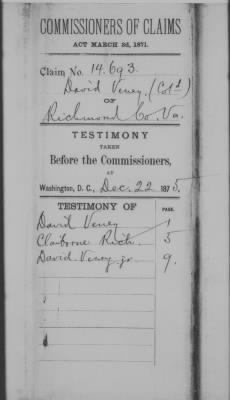 COMMISSIONERS OF CLAIMS
ACT MARCH 3d, 1871.
Claim No. 14.693.
David Veney, (Col'd)
OF
Richmond Co. Va.
TESTIMONY
TAKEN
Before the Commissioners,
AT
Washington, D. C., Dec. 22 1875.
TESTIMONY OF PAGE.
David Veney 1
Claiborne Rich. 5
David Veney jr 9.